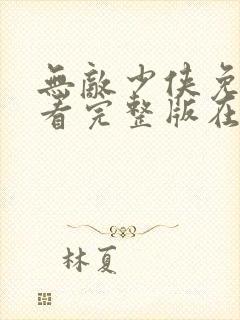 無敵少俠免
看完整版在
林夏